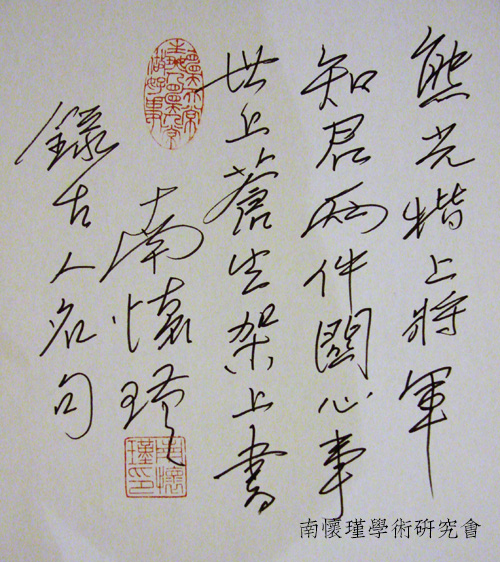 熊光楷上將軍
知君兩件關心事
世上蒼生架上書
南懷瑾
錄古人名句
南懷瑾印
南懷瑾學術研究會